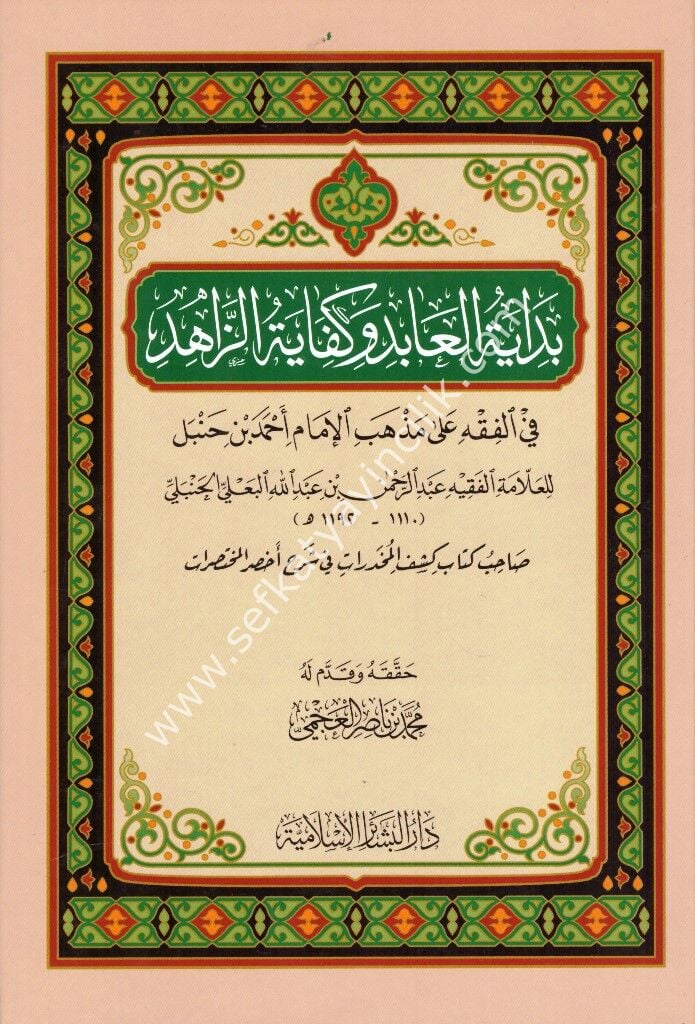 بداية العابد وكفاية الزاهد
في الفقه على مذهب الإمام أحمد بن حنبل
للعلامة الفقيه عبد الرحمن بن عبد الله البعلي الحنبلي
(١١١٠ - ١١٩٢ هـ)
صاحب كتاب كشف المخدرات في شرح أخصر المختصرات
حققه وقدم له
محمد بن ناصر العجمي
دار البشائر الإسلامية
www.sefkatyayincilik.com